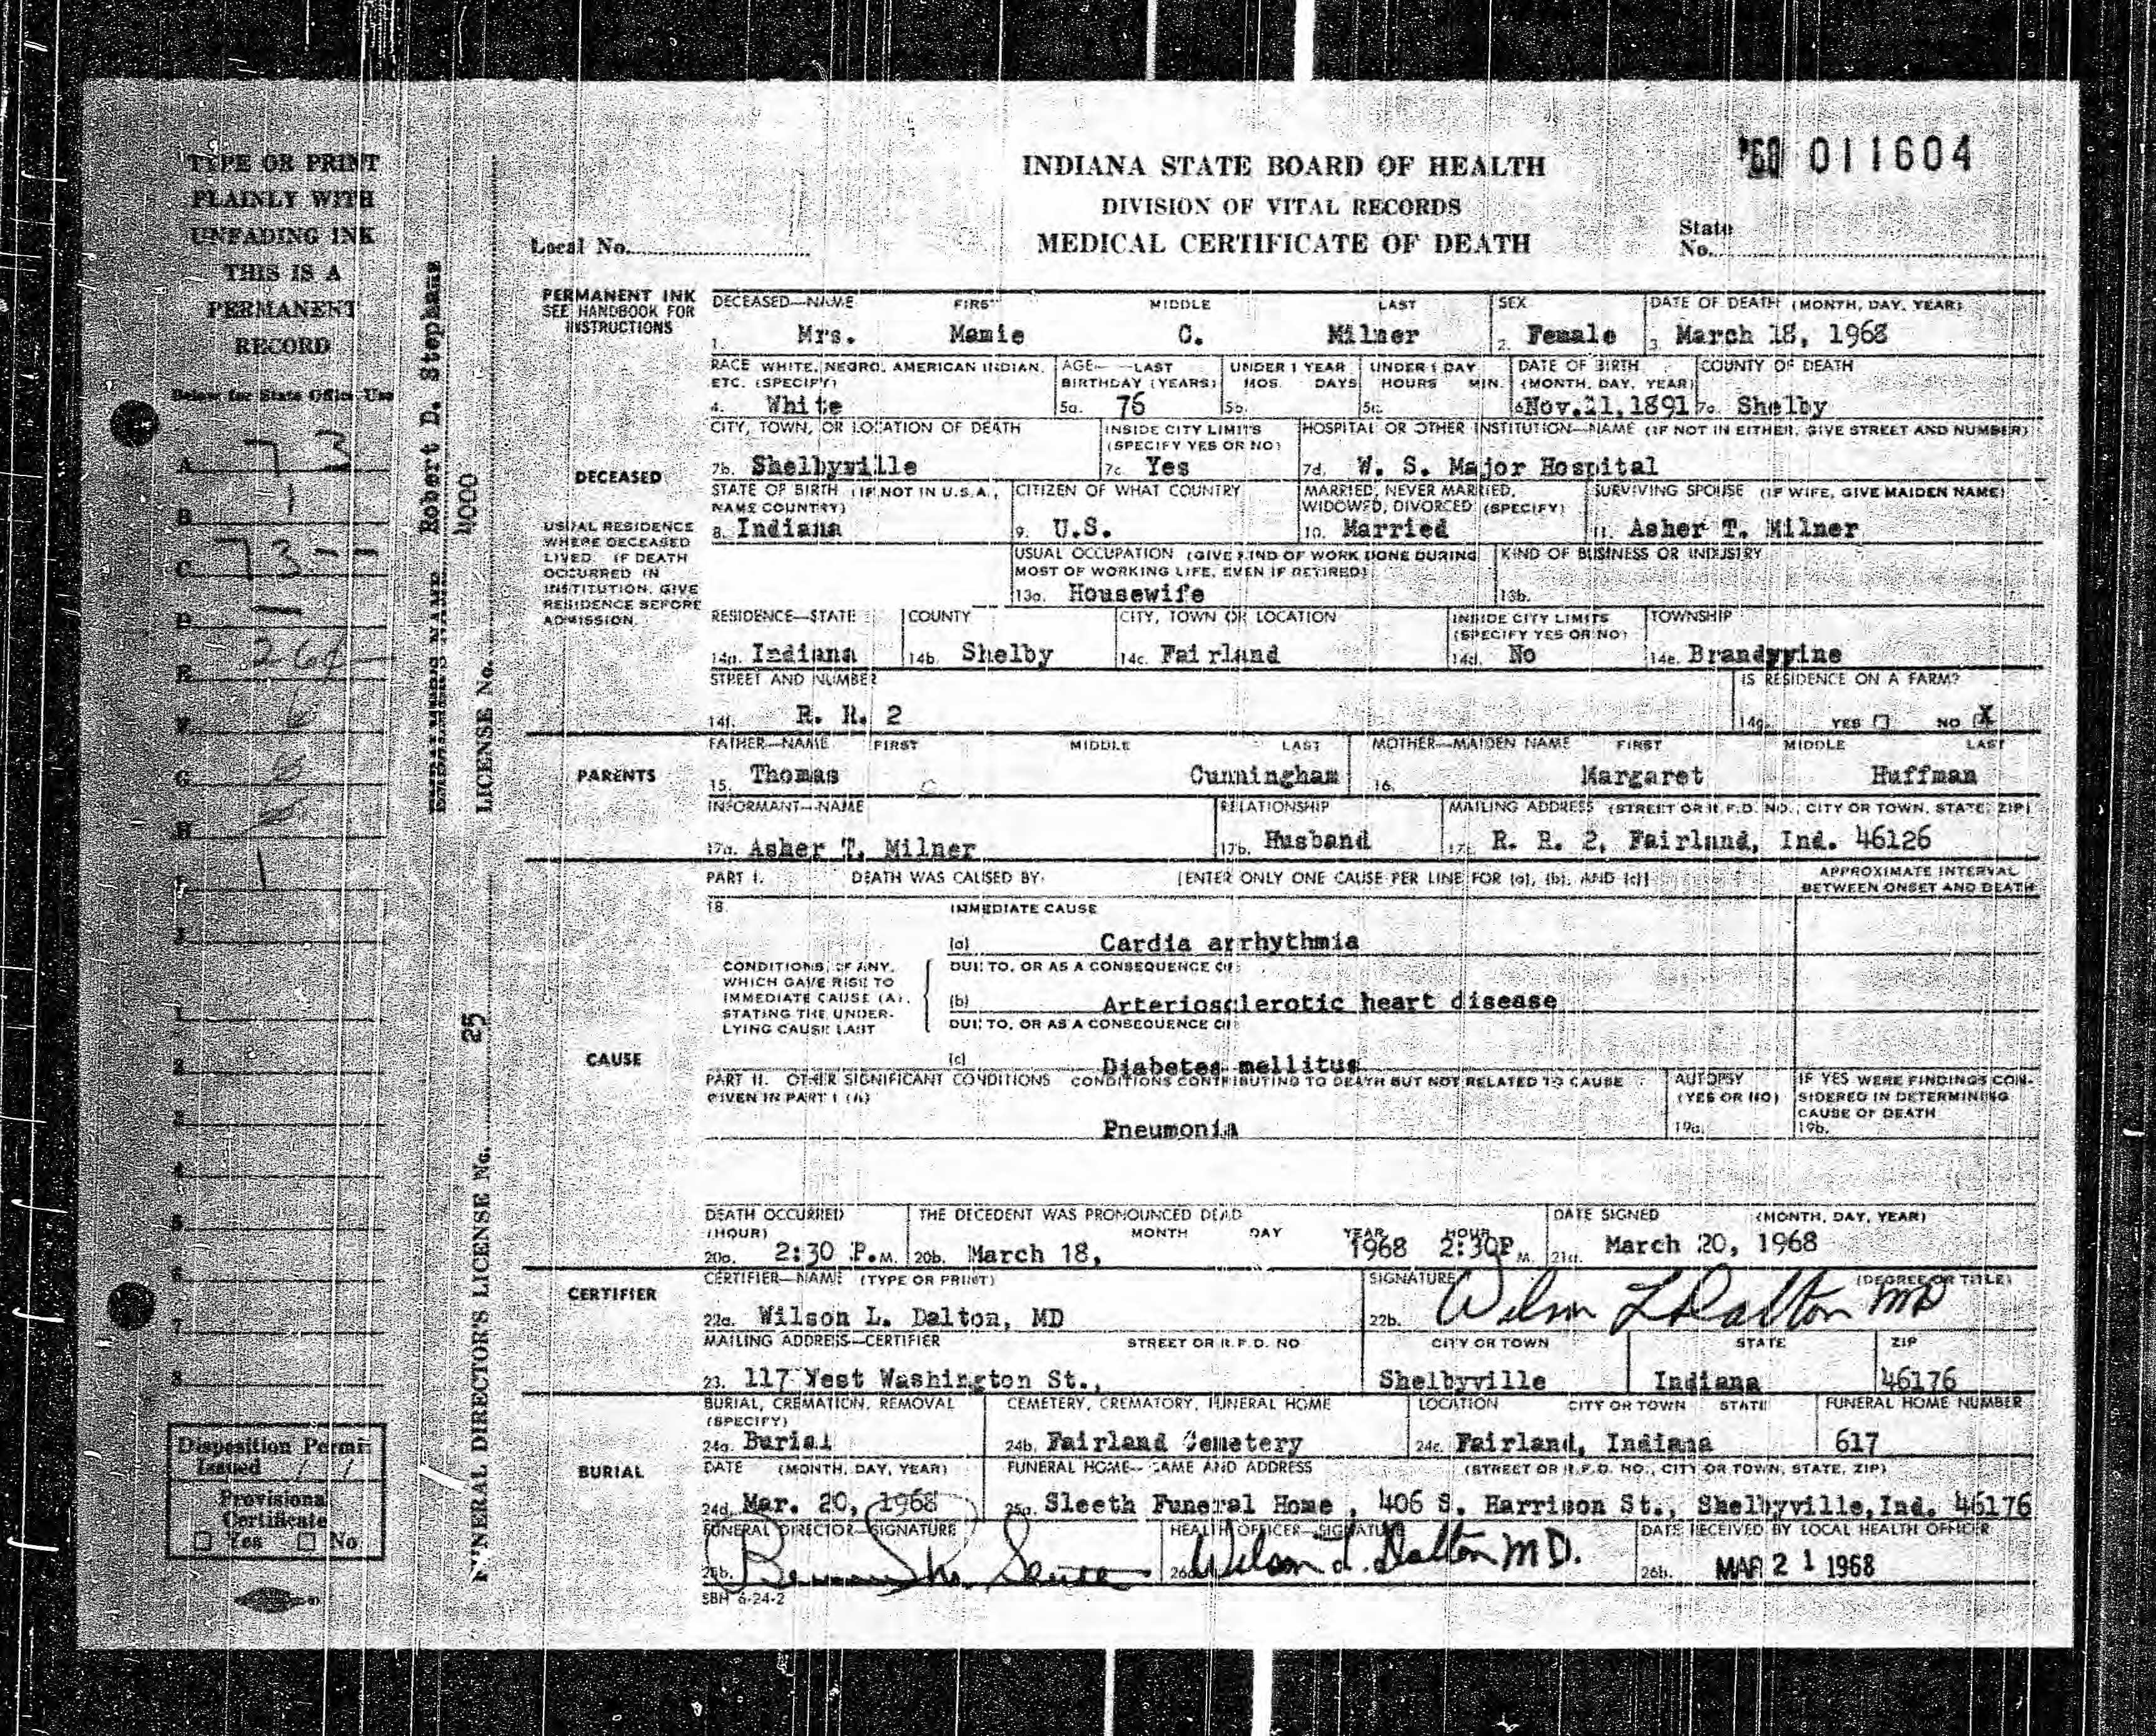 TYPE OR PRINT
PLAINLY WITH
UNFADING INK
THIS IS A
PERMANENT
RECORD
Below for State Office Use
A 73
B 1
C 73--
D —
E
F 6
G
H
I 1
J
1
2
3
4
5
6
7
8
Disposition Permit
Issued / /
Provisional
Certificate
☐ Yes ☐ No
EMBALMER'S NAME Robert D. Stephens
LICENSE No. 4000
FUNERAL DIRECTOR'S LICENSE No. 25
011604
INDIANA STATE BOARD OF HEALTH
DIVISION OF VITAL RECORDS
MEDICAL CERTIFICATE OF DEATH
Local No.
State
No.
PERMANENT INK
SEE HANDBOOK FOR
INSTRUCTIONS
DECEASED—NAME FIRST MIDDLE LAST SEX DATE OF DEATH (MONTH, DAY, YEAR)
1. Mrs. Mamie C. Milner 2. Female 3. March 18, 1968
RACE WHITE, NEGRO, AMERICAN INDIAN, ETC. (SPECIFY) AGE—LAST BIRTHDAY (YEARS) UNDER 1 YEAR MOS. DAYS UNDER 1 DAY HOURS MIN. DATE OF BIRTH (MONTH, DAY, YEAR) COUNTY OF DEATH
4. White 5a. 76 5b. 5c. 6. Nov. 21, 1891 7a. Shelby
CITY, TOWN, OR LOCATION OF DEATH INSIDE CITY LIMITS (SPECIFY YES OR NO) HOSPITAL OR OTHER INSTITUTION—NAME (IF NOT IN EITHER, GIVE STREET AND NUMBER)
DECEASED
7b. Shelbyville 7c. Yes 7d. W. S. Major Hospital
STATE OF BIRTH (IF NOT IN U.S.A., NAME COUNTRY) CITIZEN OF WHAT COUNTRY MARRIED, NEVER MARRIED, WIDOWED, DIVORCED (SPECIFY) SURVIVING SPOUSE (IF WIFE, GIVE MAIDEN NAME)
8. Indiana 9. U.S. 10. Married 11. Asher T. Milner
USUAL RESIDENCE
WHERE DECEASED
LIVED. IF DEATH
OCCURRED IN
INSTITUTION, GIVE
RESIDENCE BEFORE
ADMISSION.
USUAL OCCUPATION (GIVE KIND OF WORK DONE DURING MOST OF WORKING LIFE, EVEN IF RETIRED) KIND OF BUSINESS OR INDUSTRY
13a. Housewife 13b.
RESIDENCE—STATE COUNTY CITY, TOWN OR LOCATION INSIDE CITY LIMITS (SPECIFY YES OR NO) TOWNSHIP
14a. Indiana 14b. Shelby 14c. Fairland 14d. No 14e. Brandywine
STREET AND NUMBER IS RESIDENCE ON A FARM?
14f. R. R. 2 14g. YES ☐ NO ☒
FATHER—NAME FIRST MIDDLE LAST MOTHER—MAIDEN NAME FIRST MIDDLE LAST
PARENTS
15. Thomas Cunningham 16. Margaret Huffman
INFORMANT—NAME RELATIONSHIP MAILING ADDRESS (STREET OR R.F.D. NO., CITY OR TOWN, STATE, ZIP)
17a. Asher T. Milner 17b. Husband 17c. R. R. 2, Fairland, Ind. 46126
PART I. DEATH WAS CAUSED BY: [ENTER ONLY ONE CAUSE PER LINE FOR (a), (b), AND (c)] APPROXIMATE INTERVAL BETWEEN ONSET AND DEATH
18. IMMEDIATE CAUSE
(a) Cardia arrhythmia
CONDITIONS, IF ANY,
WHICH GAVE RISE TO
IMMEDIATE CAUSE (A),
STATING THE UNDER-
LYING CAUSE LAST
DUE TO, OR AS A CONSEQUENCE OF:
(b) Arteriosclerotic heart disease
DUE TO, OR AS A CONSEQUENCE OF:
CAUSE
(c) Diabetes mellitus
PART II. OTHER SIGNIFICANT CONDITIONS CONDITIONS CONTRIBUTING TO DEATH BUT NOT RELATED TO CAUSE GIVEN IN PART I (A) AUTOPSY (YES OR NO) IF YES WERE FINDINGS CONSIDERED IN DETERMINING CAUSE OF DEATH
Pneumonia 19a. 19b.
DEATH OCCURRED (HOUR) THE DECEDENT WAS PRONOUNCED DEAD MONTH DAY YEAR HOUR DATE SIGNED (MONTH, DAY, YEAR)
20a. 2:30 P.M. 20b. March 18, 1968 2:30P M. 21a. March 20, 1968
CERTIFIER
CERTIFIER—NAME (TYPE OR PRINT) SIGNATURE (DEGREE OR TITLE)
22a. Wilson L. Dalton, MD 22b. Wilson L Dalton MD
MAILING ADDRESS—CERTIFIER STREET OR R.F.D. NO CITY OR TOWN STATE ZIP
23. 117 West Washington St., Shelbyville Indiana 46176
BURIAL, CREMATION, REMOVAL (SPECIFY) CEMETERY, CREMATORY, FUNERAL HOME LOCATION CITY OR TOWN STATE FUNERAL HOME NUMBER
24a. Burial 24b. Fairland Cemetery 24c. Fairland, Indiana 617
BURIAL
DATE (MONTH, DAY, YEAR) FUNERAL HOME—NAME AND ADDRESS (STREET OR R.F.D. NO., CITY OR TOWN, STATE, ZIP)
24d. Mar. 20, 1968 25a. Sleeth Funeral Home, 406 S. Harrison St., Shelbyville, Ind. 46176
FUNERAL DIRECTOR—SIGNATURE HEALTH OFFICER—SIGNATURE DATE RECEIVED BY LOCAL HEALTH OFFICER
25b. 26a. Wilson L. Dalton MD. 26b. MAR 21 1968
SBH 6-24-2